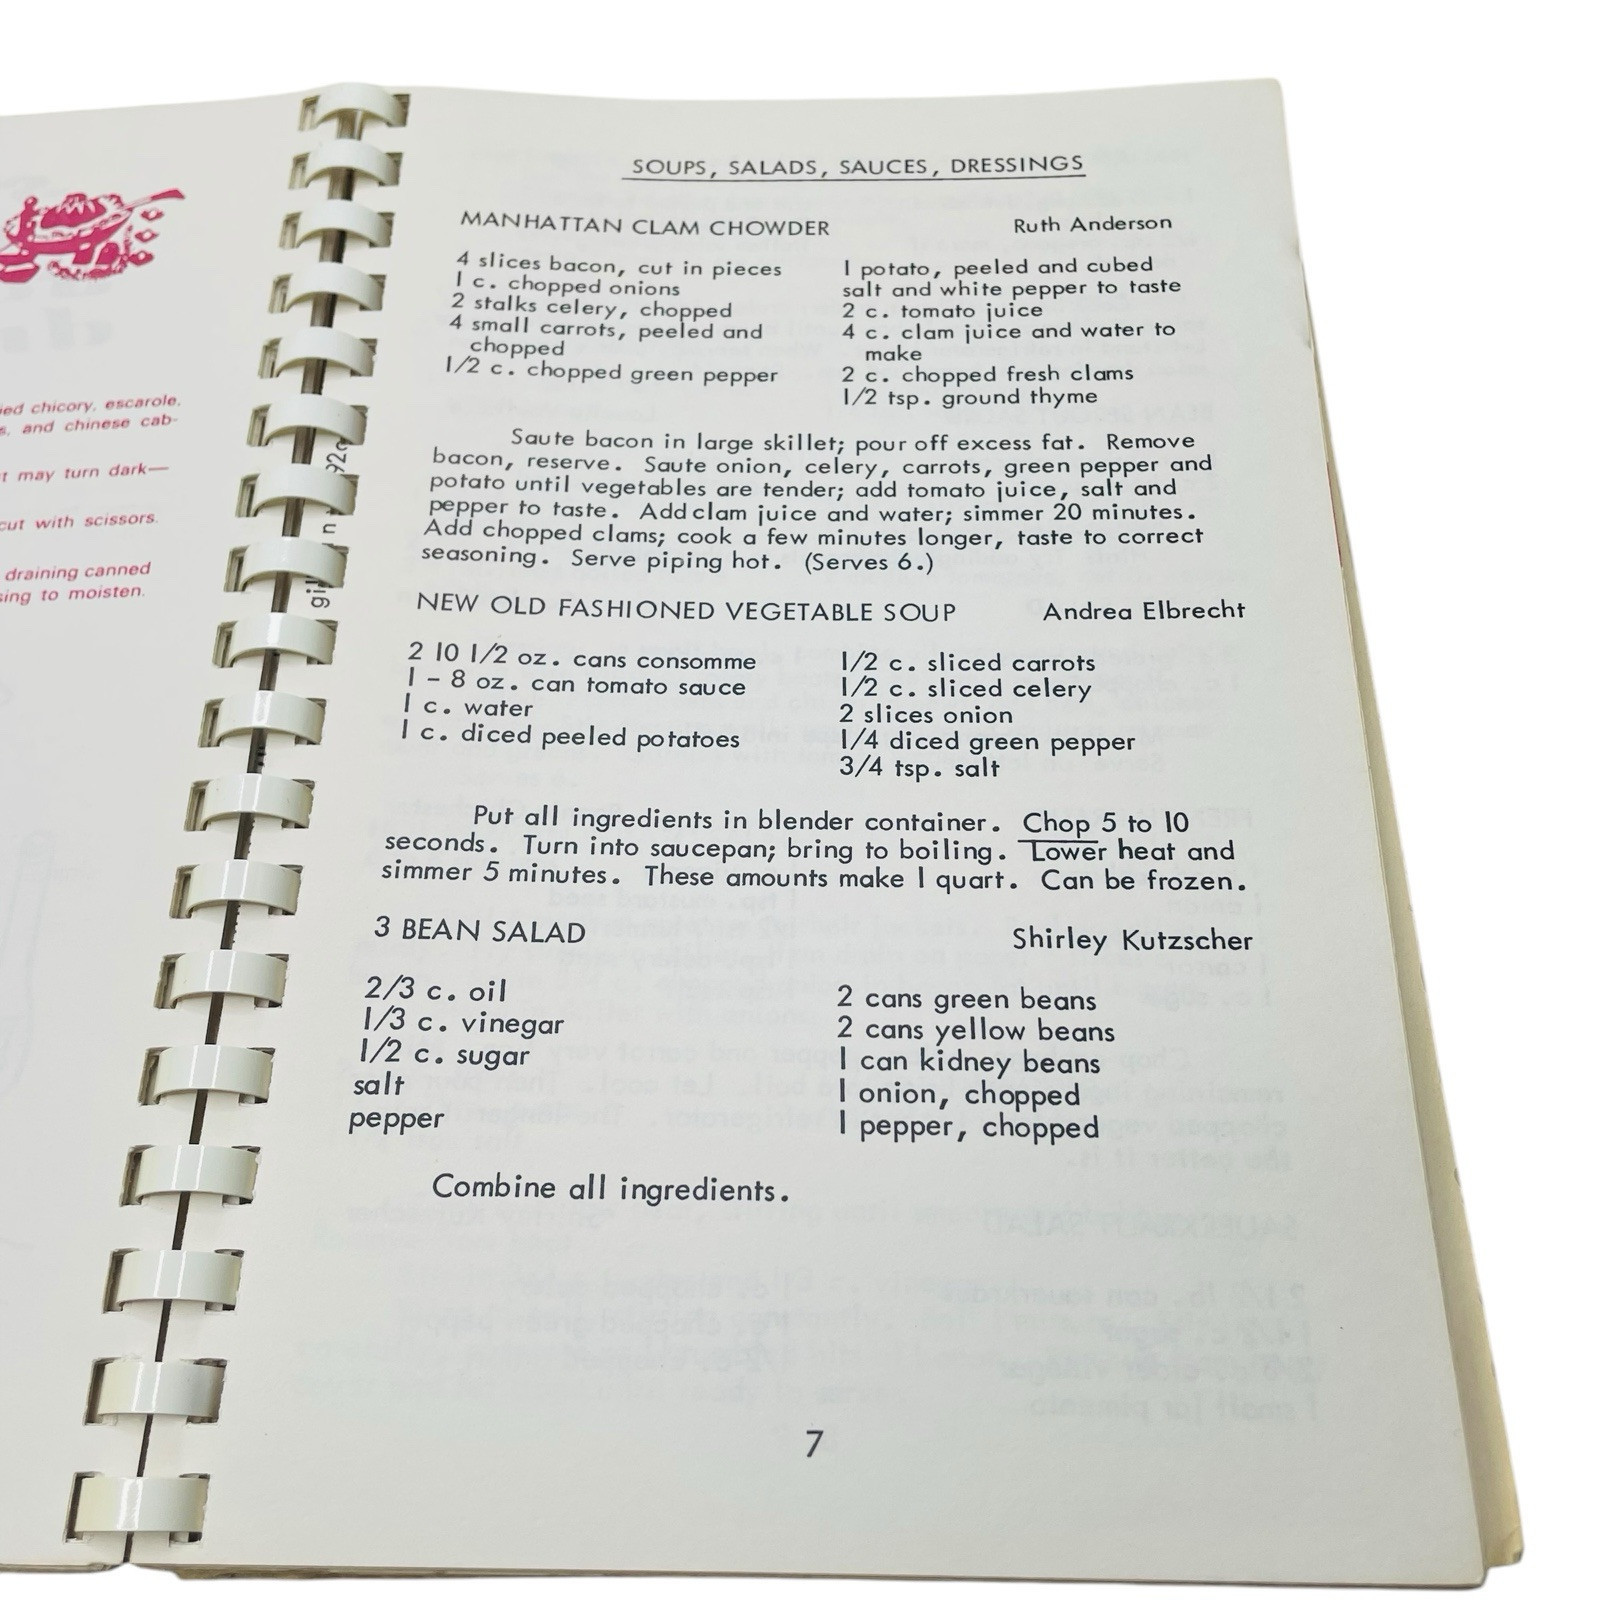 ied chicory, escarole,
s, and chinese cab-
t may turn dark—
cut with scissors.
draining canned
sing to moisten.
SOUPS, SALADS, SAUCES, DRESSINGS
MANHATTAN CLAM CHOWDER Ruth Anderson
4 slices bacon, cut in pieces
1 c. chopped onions
2 stalks celery, chopped
4 small carrots, peeled and
chopped
1/2 c. chopped green pepper
1 potato, peeled and cubed
salt and white pepper to taste
2 c. tomato juice
4 c. clam juice and water to
make
2 c. chopped fresh clams
1/2 tsp. ground thyme
Saute bacon in large skillet; pour off excess fat. Remove
bacon, reserve. Saute onion, celery, carrots, green pepper and
potato until vegetables are tender; add tomato juice, salt and
pepper to taste. Add clam juice and water; simmer 20 minutes.
Add chopped clams; cook a few minutes longer, taste to correct
seasoning. Serve piping hot. (Serves 6.)
NEW OLD FASHIONED VEGETABLE SOUP Andrea Elbrecht
2 10 1/2 oz. cans consomme
1 - 8 oz. can tomato sauce
1 c. water
1 c. diced peeled potatoes
1/2 c. sliced carrots
1/2 c. sliced celery
2 slices onion
1/4 diced green pepper
3/4 tsp. salt
Put all ingredients in blender container. Chop 5 to 10
seconds. Turn into saucepan; bring to boiling. Lower heat and
simmer 5 minutes. These amounts make 1 quart. Can be frozen.
3 BEAN SALAD Shirley Kutzscher
2/3 c. oil
1/3 c. vinegar
1/2 c. sugar
salt
pepper
2 cans green beans
2 cans yellow beans
1 can kidney beans
1 onion, chopped
1 pepper, chopped
Combine all ingredients.
7